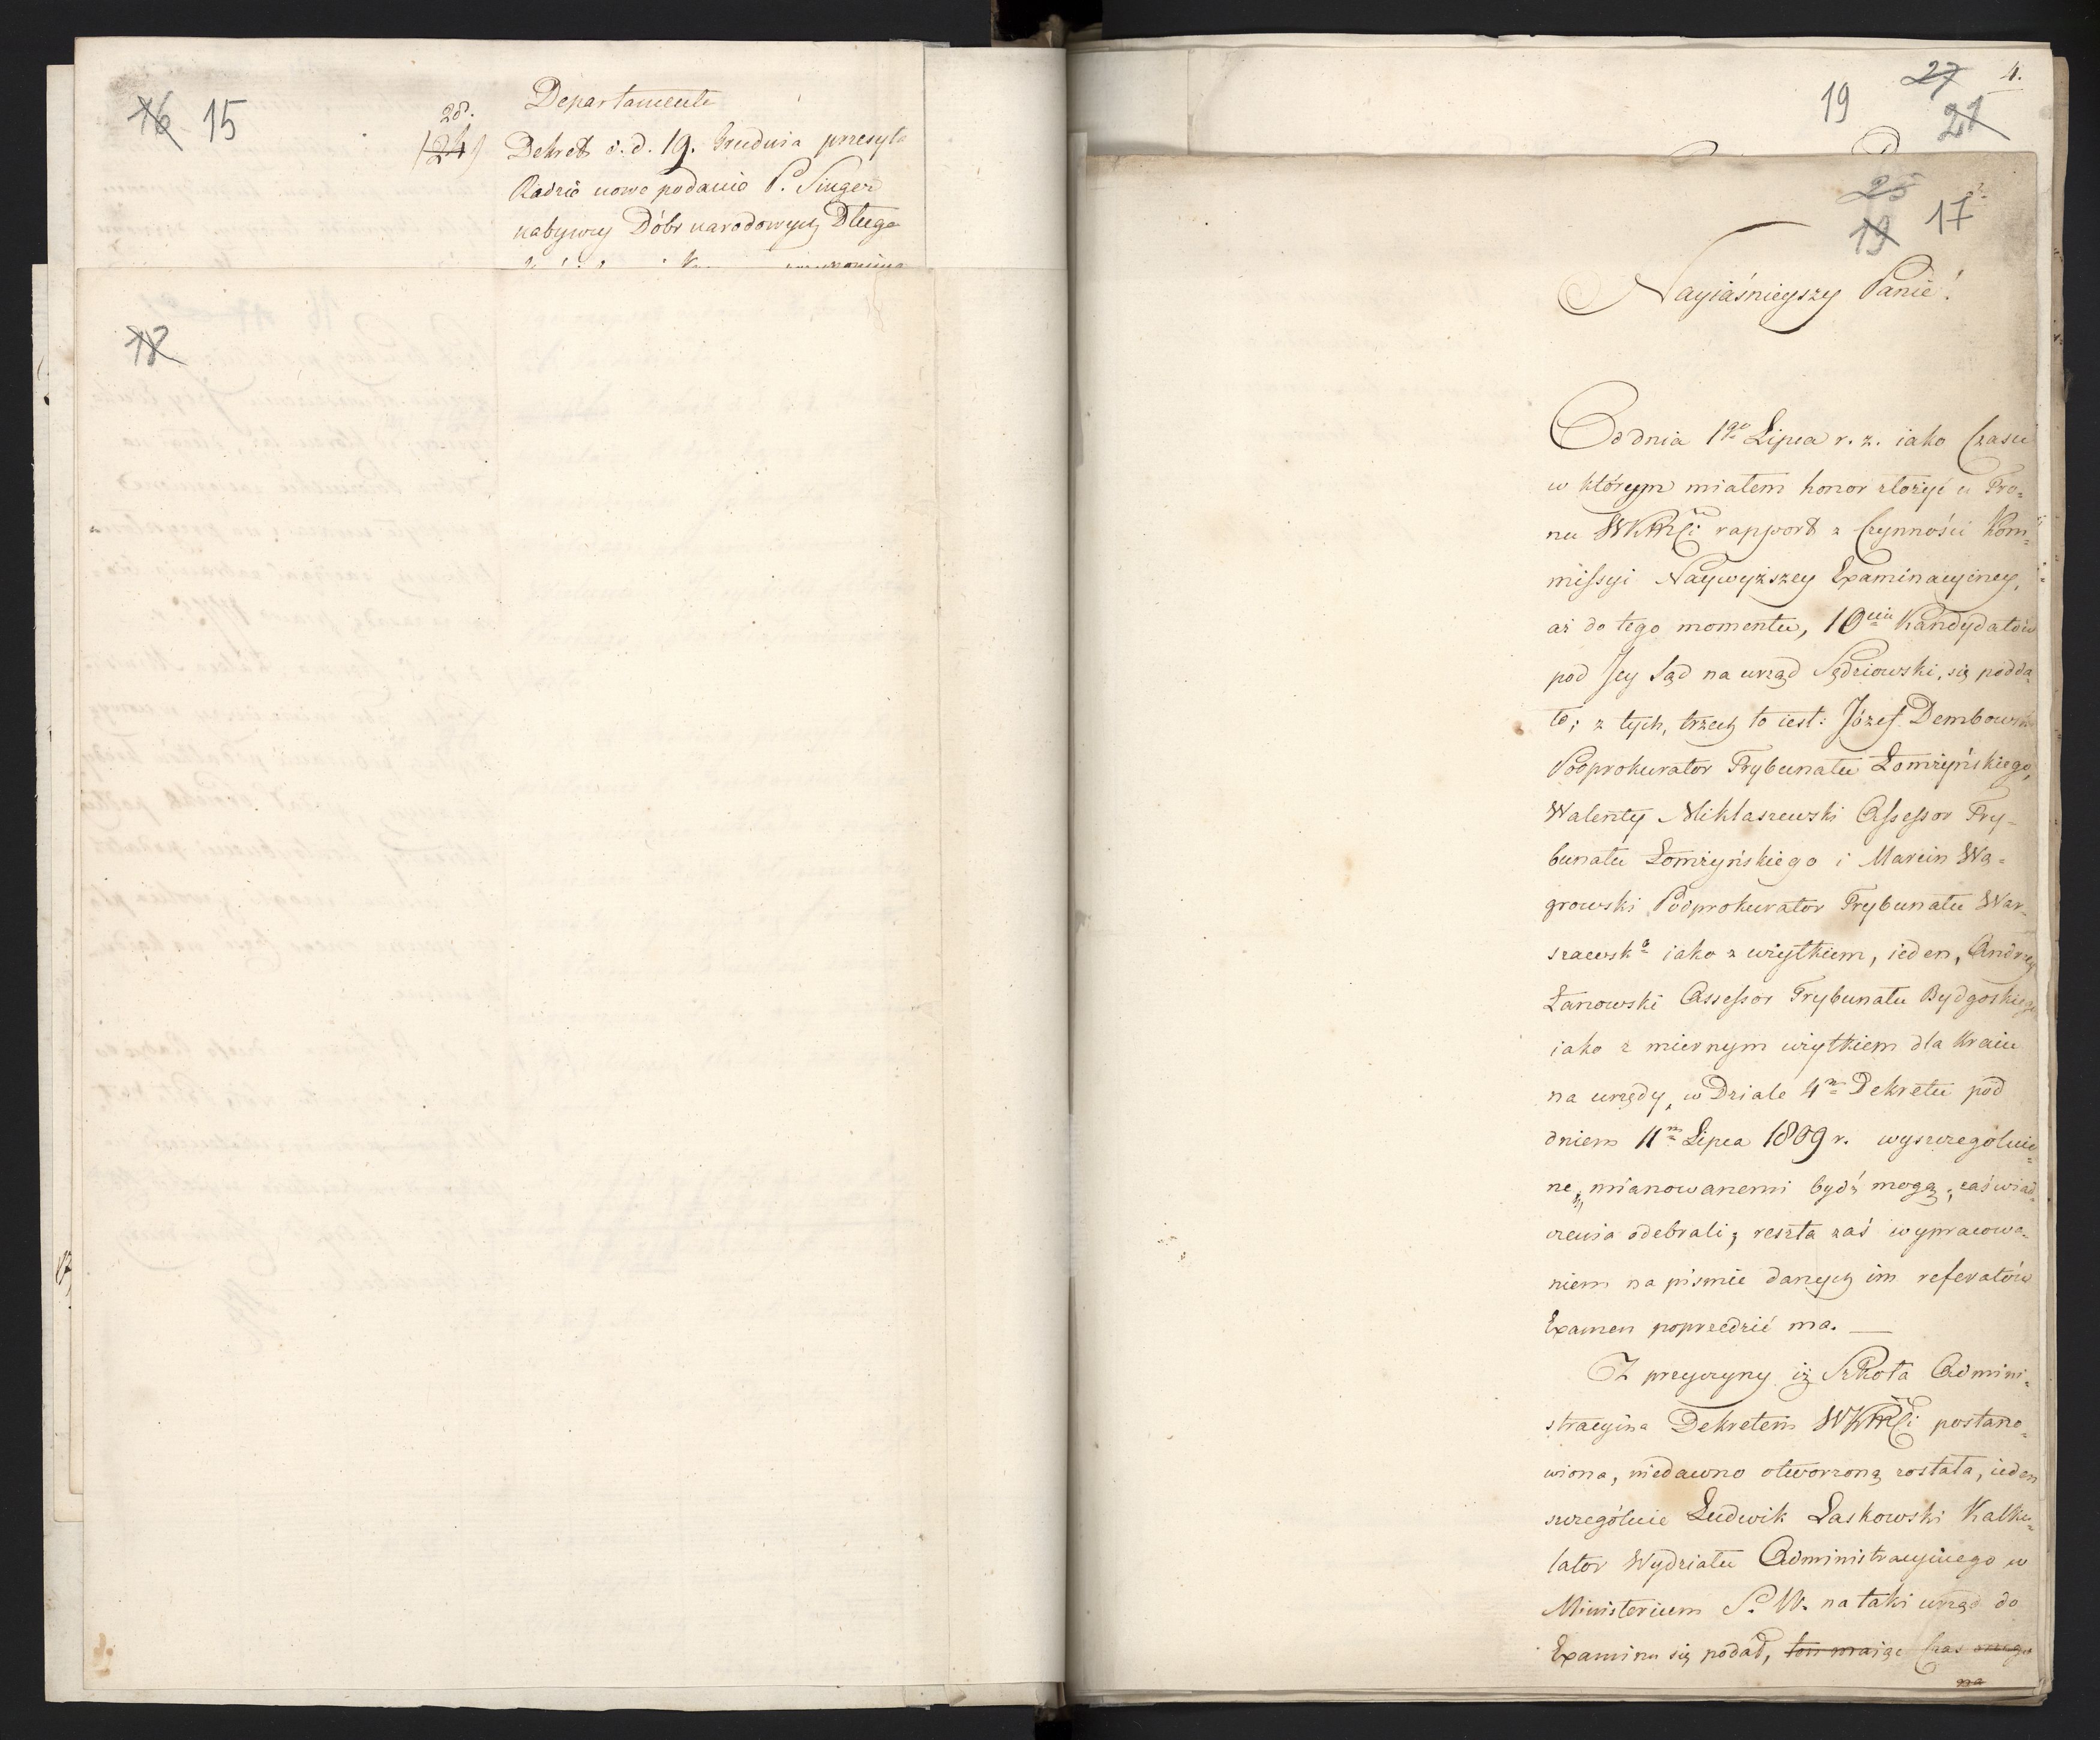 16 15
Departamentu
28.
(24) Dekret d. d. 19. Grudnia przesyła
Radzie nowe podanie P. Singer
nabywcy Dóbr narodowych Długa
18
19 27 4.
21
25
19 17
Nayiaśnieyszy Panie!
Od dnia 1go Lipca r. z. iako Czasu
w którym miałem honor złożyć u Tro=
nu WKMCi rapport z Czynności Kom=
missyi Naywyższey Examinacyiney,
aż do tego momentu, 10ciu Kandydatów
pod Jey Sąd na urząd Sędziowski, się podda=
ło; z tych, trzech to iest: Józef Dembowski
Podprokurator Trybunału Łomżyńskiego,
Walenty Miklaszewski Assessor Try=
bunału Łomżyńskiego i Marcin Wą=
growski Podprokurator Trybunału War=
szawsko iako z użytkiem, ieden, Andrzey
Łanowski Assessor Trybunału Bydgoskiego
iako z miernym użytkiem dla Kraiu
na urzędy, w Dziale 4m Dekretu pod
dniem 11m Lipca 1809 r. wyszczególnio=
ne, mianowanemi bydź mogą, zaświad=
czenia odebrali; reszta zaś wypracowa=
niem na pismie danych im referatów
Examen poprzedzić ma. —
Z przyczyny iż Szkoła Admini=
stracyina Dekretem WKMCi postano=
wiona, niedawno otworzoną została, ieden
szczególnie Ludwik Laskowski Kalku=
lator Wydziału Administracyinego w
Ministerium S. W. na taki urząd do
Examinu się podał, ten maiąc Czas
na